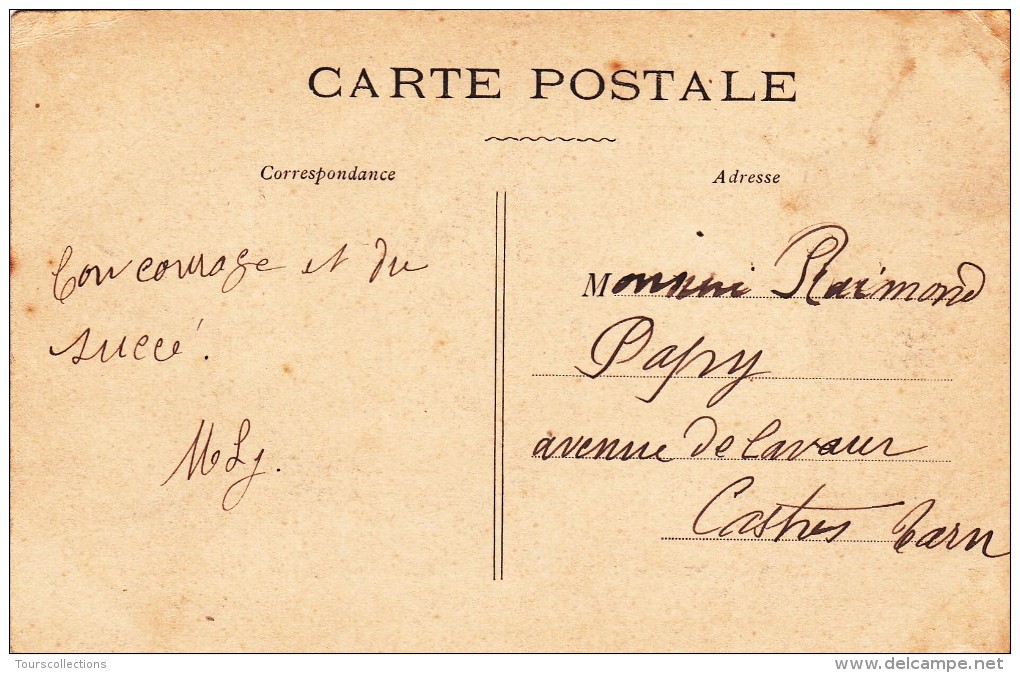 CARTE POSTALE
Correspondance
Bon courage et du
succé.
Adresse
Monsieur Raimond
Papry
avenue de Lavaur
Castres Tarn
Tourscollections
delcampe.net